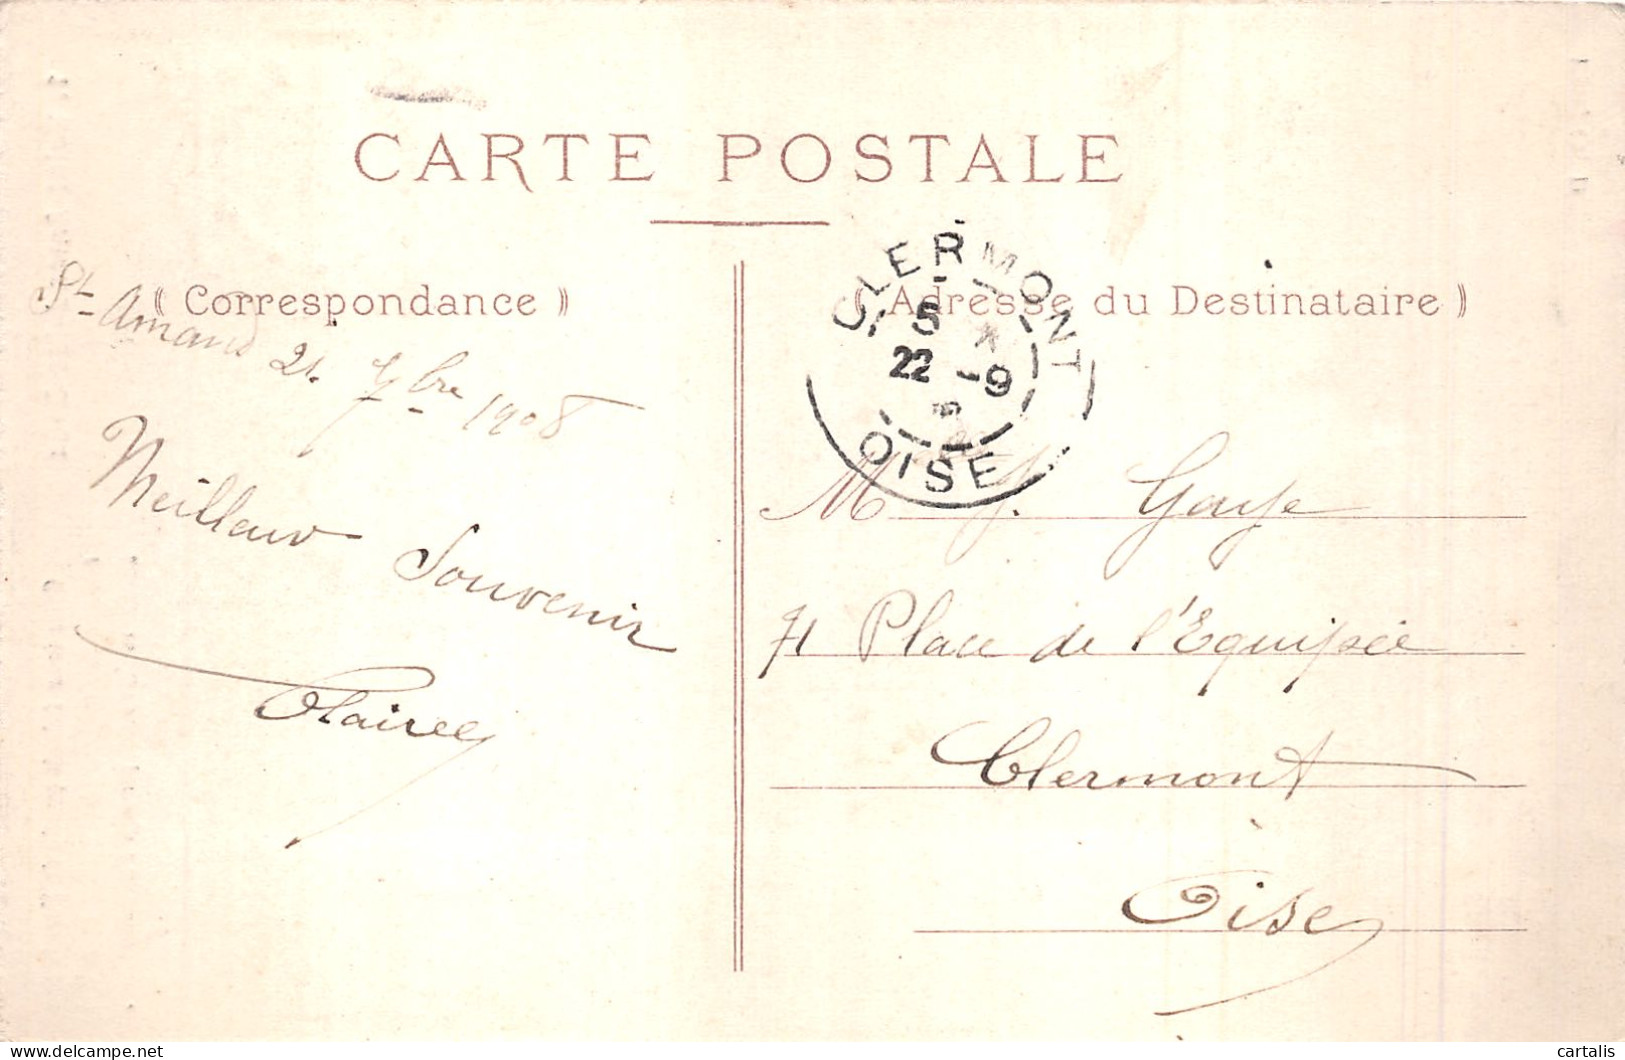 CARTE POSTALE
(Correspondance)
St Amand 21. 7bre 1908
Meilleur Souvenir
Claire
(Adresse du Destinataire)
CLERMONT
5
22 -9
OISE
M J. Gaye
71 Place de l'Equipée
Clermont
Oise
www.delcampe.net
cartalis